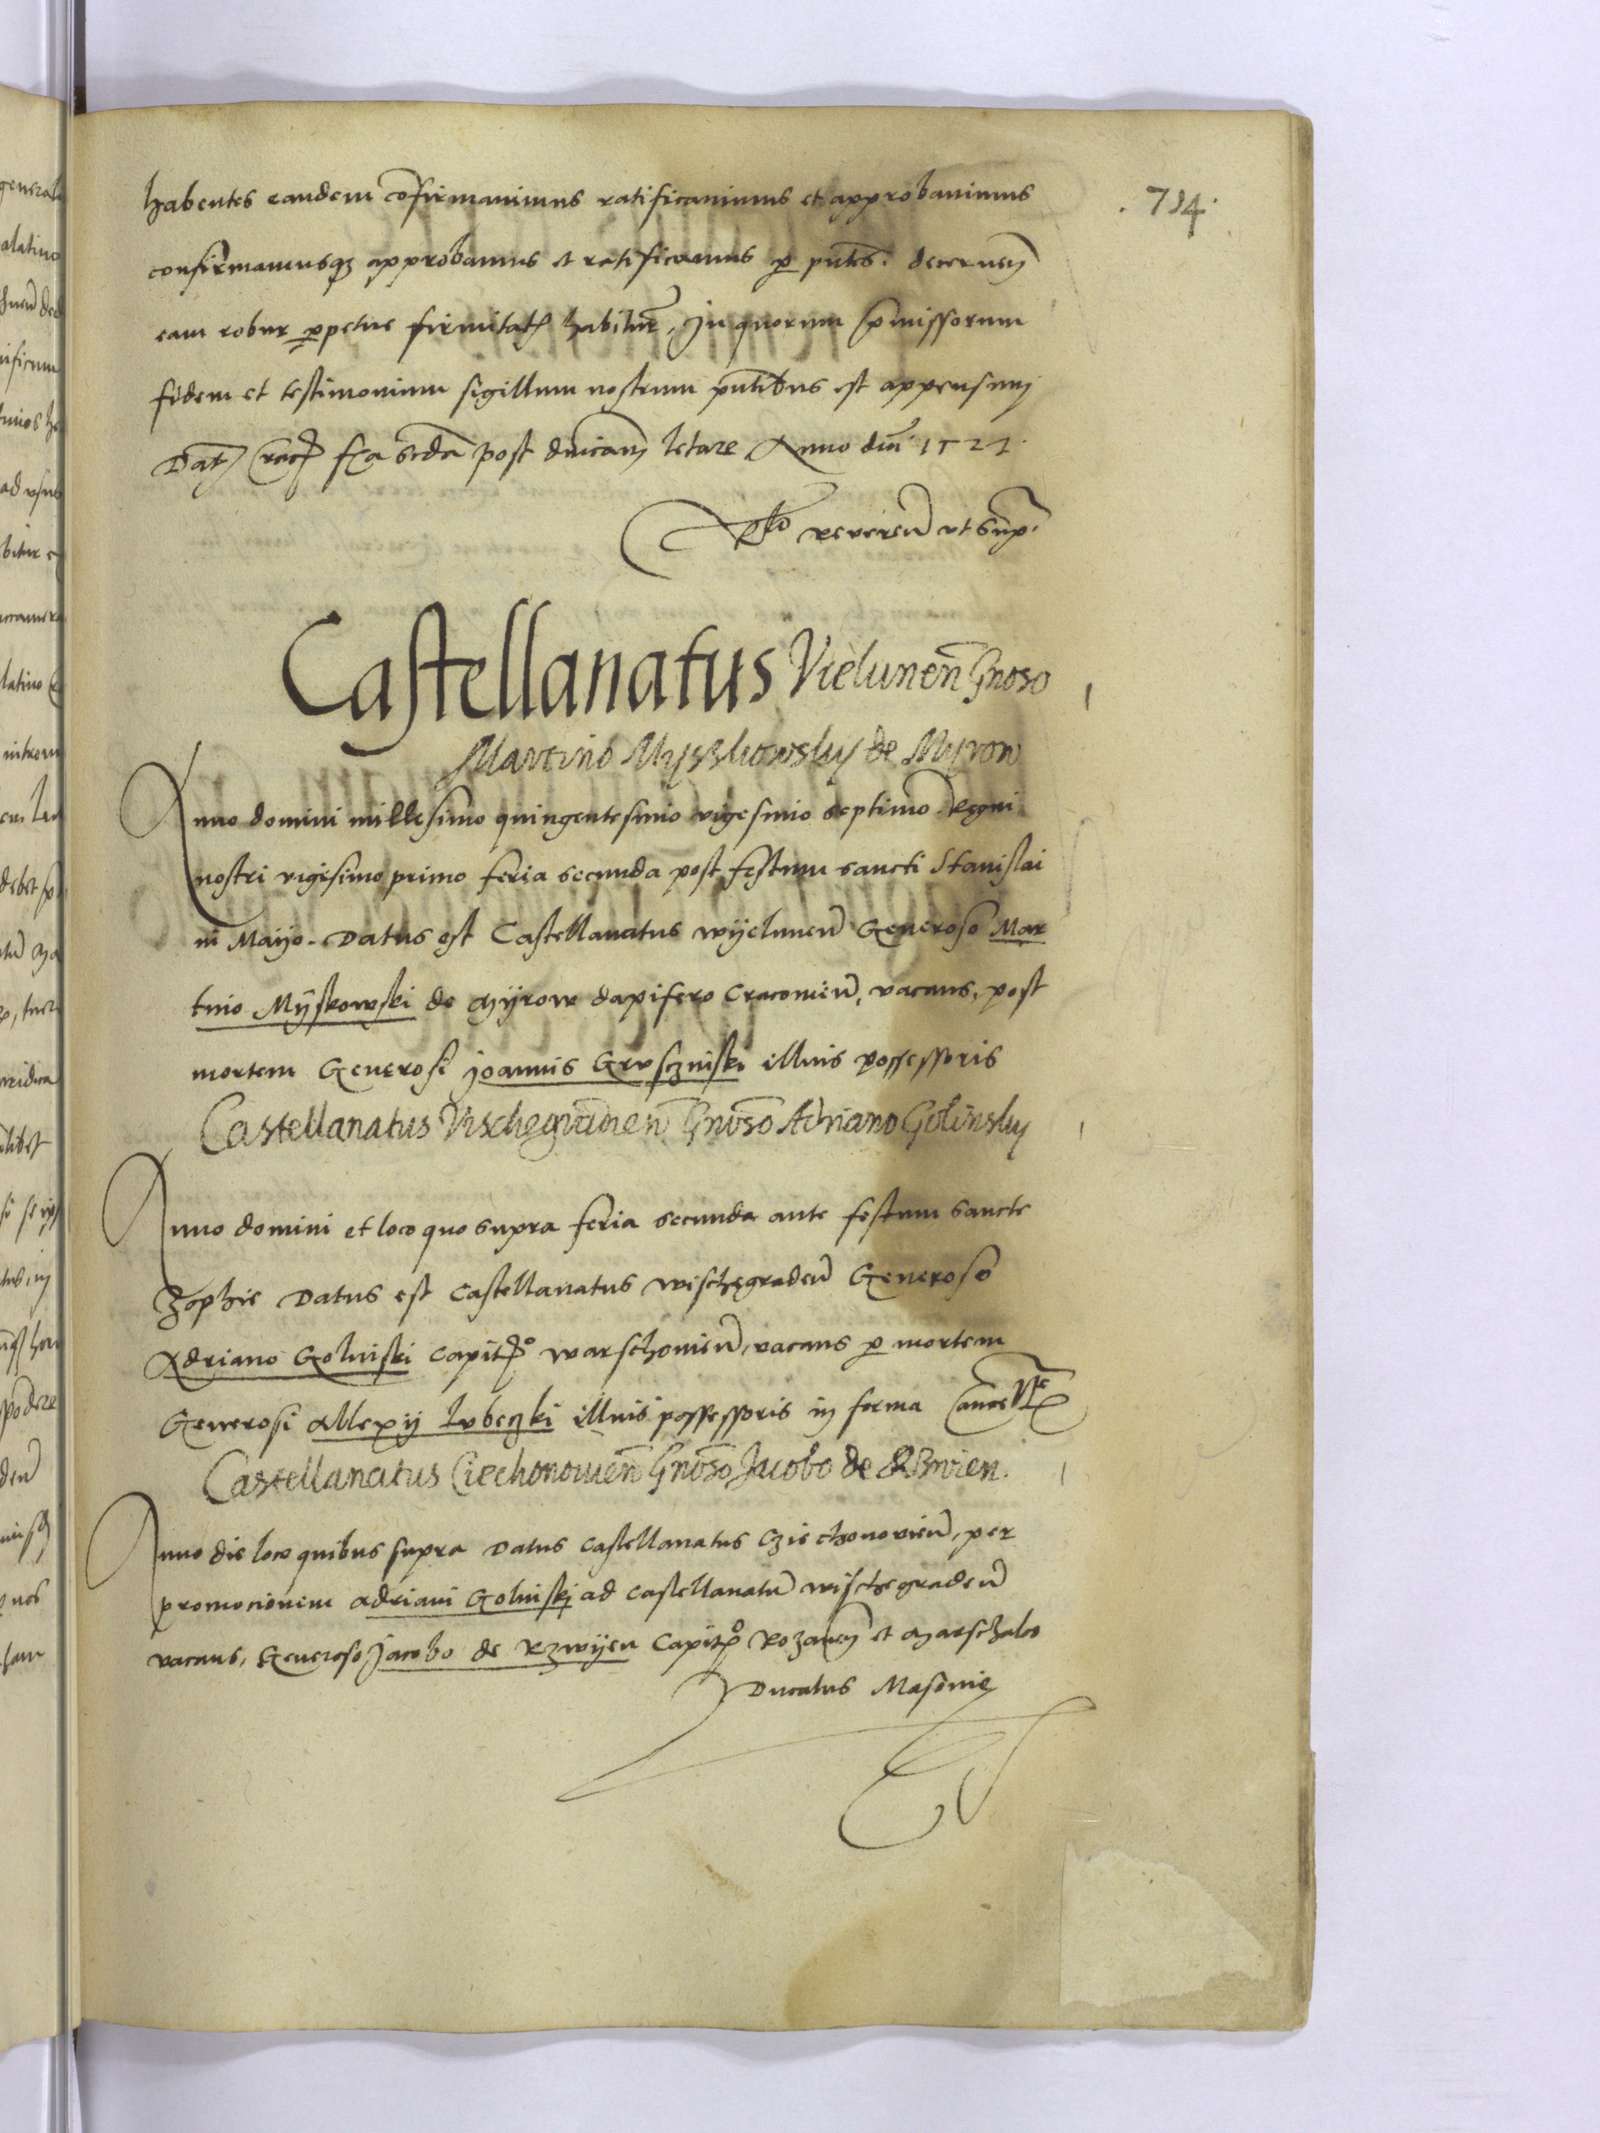 .734.
habentes eandem cōfirmavimus ratificavimus et approbavimus
confirmamusqȝ approbamus et ratificamus p pn̄tes. decernen̄
eam robur ppetue firmitatꝭ habiturā. In quorum p̄missorum
fidem et testimonium sigillum nostrum pn̄tibus est appensum
Dat̄ Cracꝭ fr̄a scd̄a post dn̄icam letare Anno dn̄i 1527.
Rlō reveren̄ ut supᵃ.
Castellanatus Vielunen̄ Gnoso
Martino Myszkowsky de Myrow
Anno domini millesimo quingentesimo vigesimo septimo Regni
nostri vigisimo primo feria secunda post festum sancti Stanislai
in Mayo. Datus est Castellanatus wyelunen̄ Generoso Mar
tino Myskowski de Myrow dapifero Cracovien̄, vacans, post
mortem Generosi Joannis Grusczinski illius possessoris
Castellanatus Vischegraden̄ Gnōso Adriano Golinsky
Anno domini et loco quo supra feria secunda ante festum sancte
Zophie Datus est Castellanatus wischegraden̄ Generoso
Adriano Golinski Capitꝭº warschovien̄, vacans p mortem
Generosi Allexij Lubeczki illius possessoris in forma Cancellrie
Castellanatus Ciechonowien̄ Gnōso Jacobo de Rzwien.
Anno die loco quibus supra Datus Castellanatus Cziechonovien̄, per
promocionem Adriani Golinski ad Castellanatū wischegraden̄
vacans, Generoso Jacobo de Rzwyen Capitꝭº Rozanen̄ et Marschalco
Ducatus Masovie